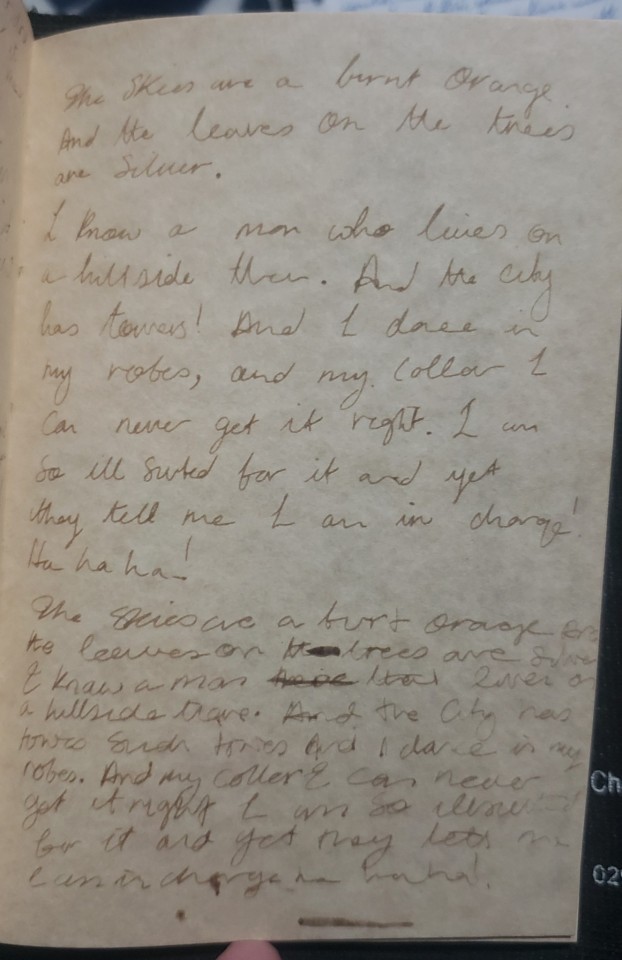 The Skies are a burnt Orange.
And the leaves on the trees
are Silver.
I know a man who lives on
a hillside there. And the city
has towers! And I dance in
my robes, and my collar I
can never get it right. I am
so ill suited for it and yet
they tell me I am in charge!
Ha ha ha!
The Skies are a burt orange
the leaves on trees are Silver
I know a man lives on
a hillside there. And the City has
towers Such towers And I dance in my
robes. And my coller I can never
get it right I am so illsuited
for it and yet they tell me
I am in charge ha ha ha!
Ch
029